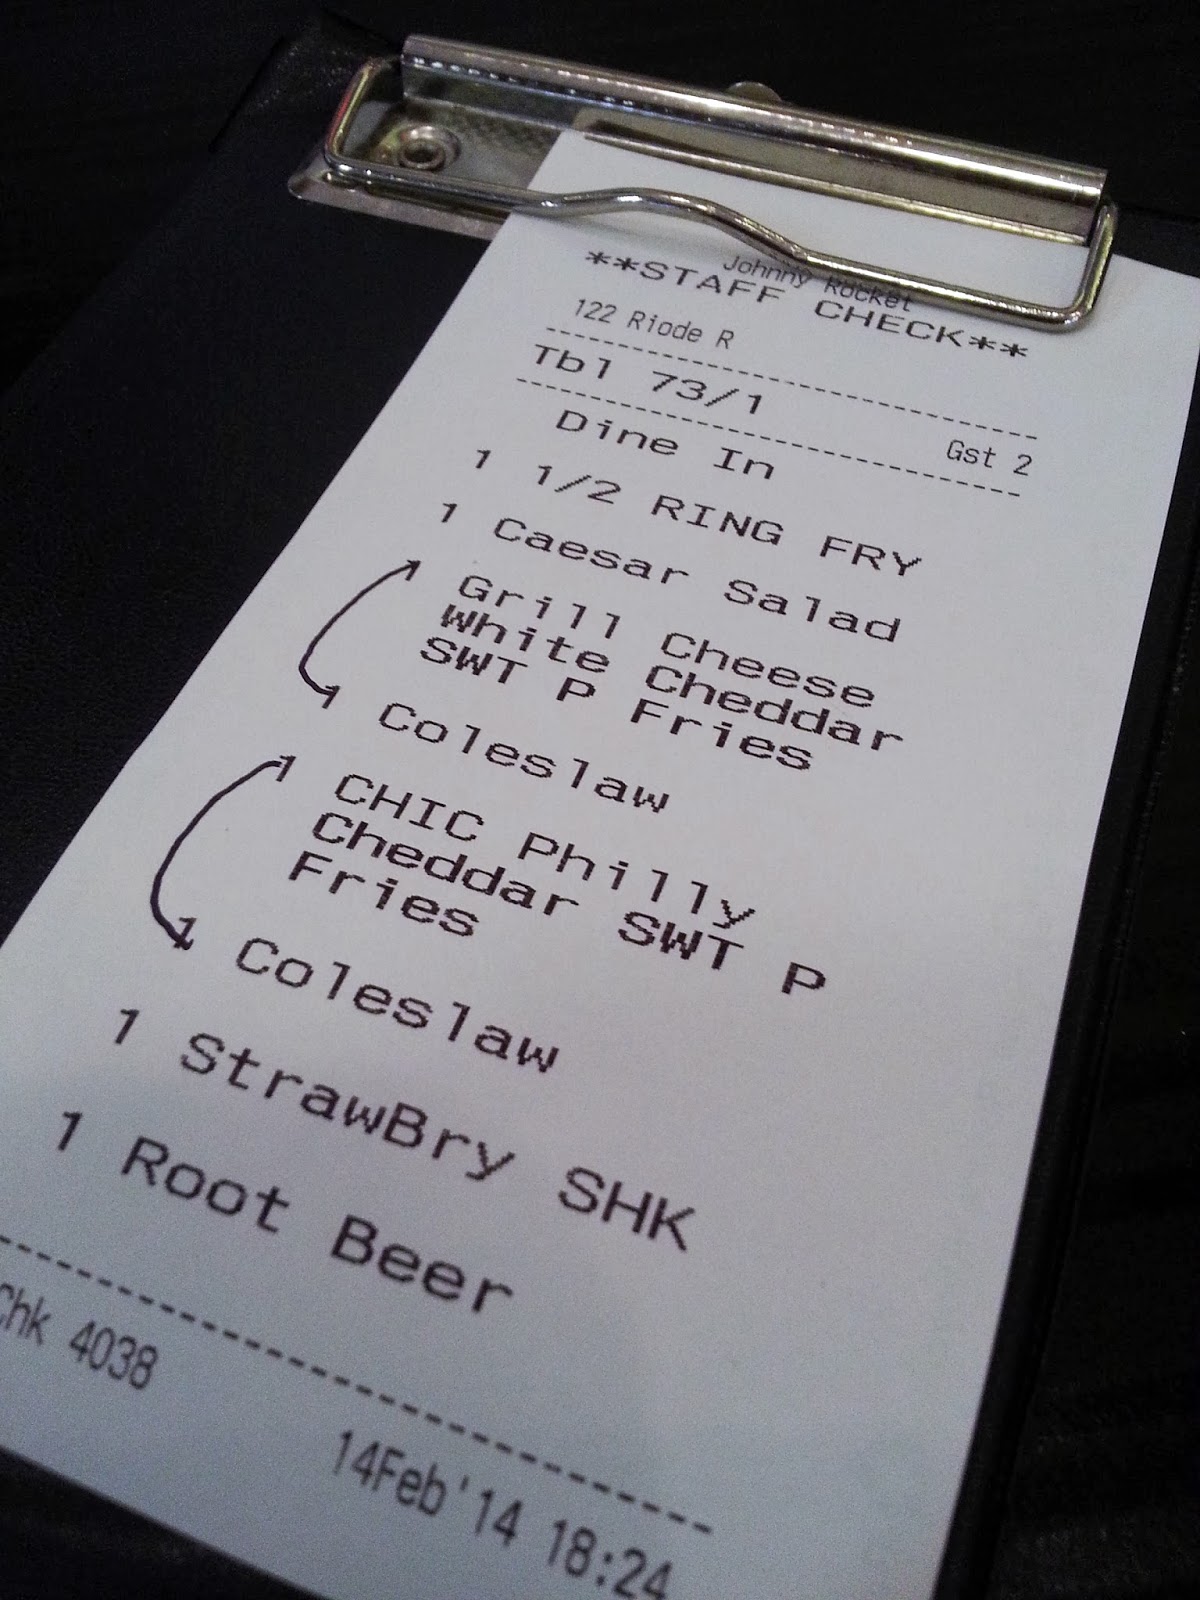 Johnny Rocket
**STAFF CHECK**
122 Riode R
Tbl 73/1 Gst 2
Dine In
1 1/2 RING FRY
1 Caesar Salad
1 Grill Cheese
White Cheddar
SWT P Fries
1 Coleslaw
1 CHIC Philly
Cheddar SWT P
Fries
1 Coleslaw
1 StrawBry SHK
1 Root Beer
Chk 4038
14Feb'14 18:24